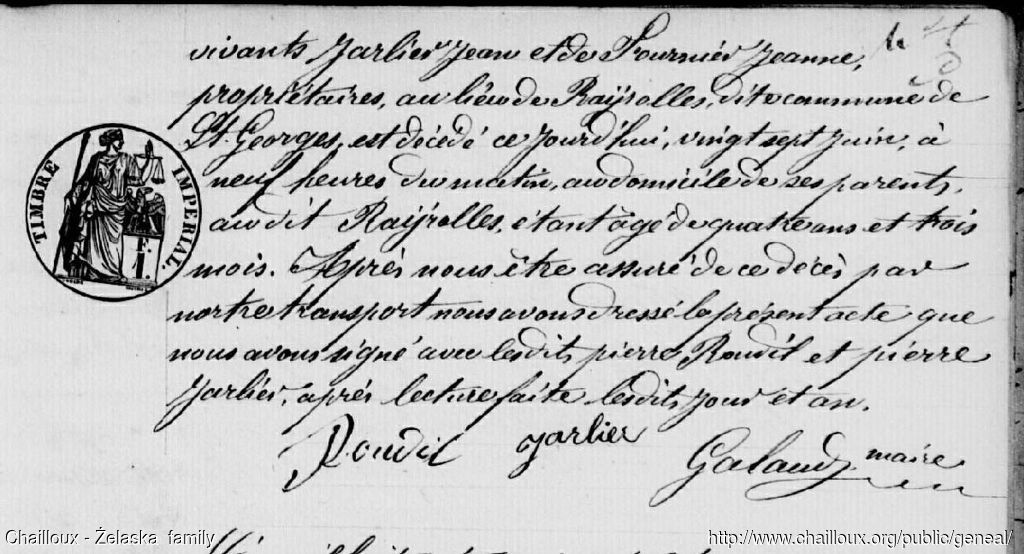 vivants Jarlier Jean et de Fournier Jeanne,
propriétaires, au liéu de Raÿrolles, dite commune de
St. Georges, est décédé ce jourd'hui, vingt sept juin, à
neuf heures du matin, au domicile de ses parents,
au dit Raÿrolles, étant âgé de quatre ans et trois
mois. Après nous être assuré de ce décès par
nortre transport nous avons dressé le présent acte que
nous avons signé avec lesdits pierre Roudil et pierre
Jarlier, après lecture faite lesdits jour et an.
Roudil Jarlier
Galaud, maire
TIMBRE IMPERIAL.
Chailloux - Żelaska family
http://www.chailloux.org/public/geneal/